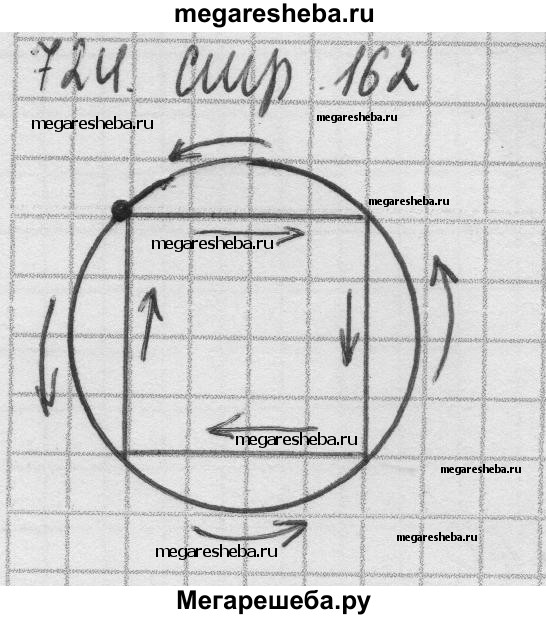 megaresheba.ru
724. стр. 162
megaresheba.ru
megaresheba.ru
megaresheba.ru
megaresheba.ru
megaresheba.ru
megaresheba.ru
megaresheba.ru
megaresheba.ru
Мегарешеба.ру